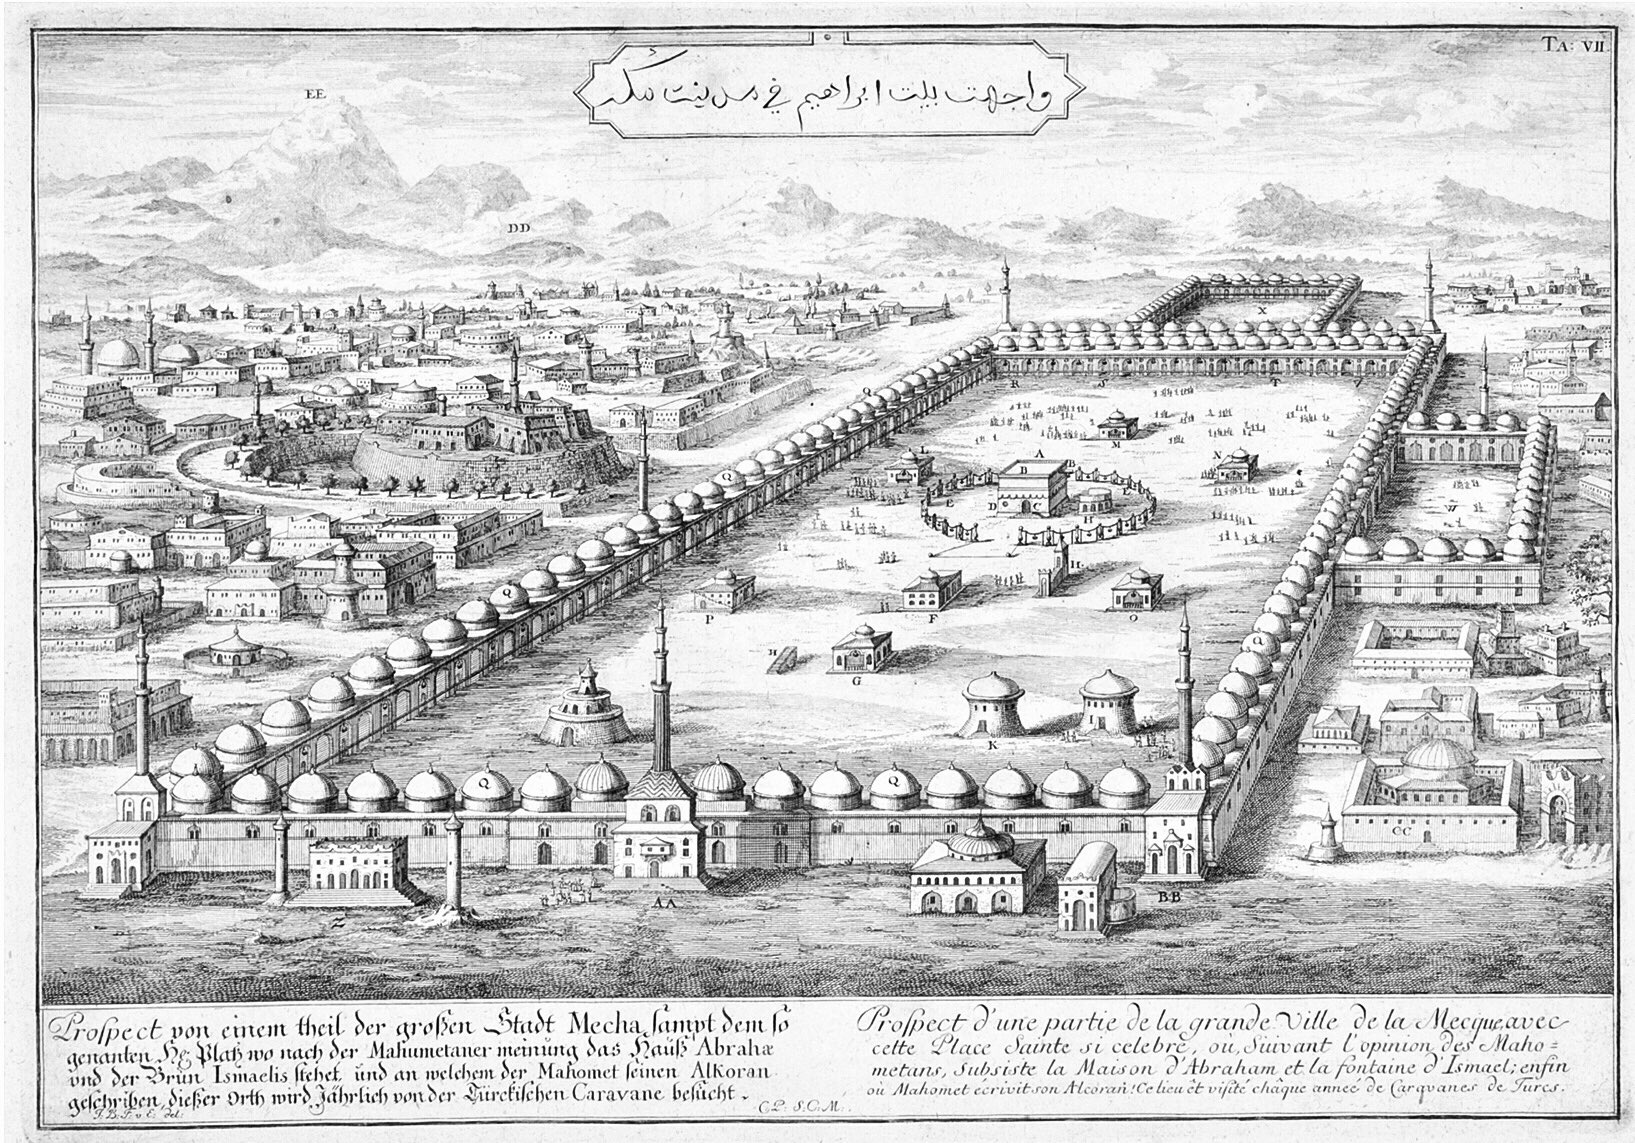 TA: VII.
واجهت بيت ابراهيم في مدينت مكه
EE
DD
X
R
T
V
Q
M
L
A
N
B
B
E
E
D
C
H
W
Q
I
P
F
O
Q
H
G
Q
K
Q
Q
CC
Z
AA
BB
Prospect von einem theil der großen Stadt Mecha, sampt dem so
genanten Hg. Platz wo nach der Mahumetaner meinung das Hauß Abrahæ
vnd der Brun Ismaelis stehet, und an welchem der Mahomet seinen AlKoran
geschriben, dießer Orth wird Jährlich von der Türckischen Caravane besucht.
J. B. F. v. E. del.
Prospect d'une partie de la grande Ville de la Mecque, avec
cette Place Sainte si celebre, où, Suivant l'opinion des Maho=
metans, Subsiste la Maison d'Abraham et la fontaine d'Ismael; enfin
où Mahomet écrivit son Alcoran. Ce lieu êt visité châque anneé de Caravanes de Turcs.
C. P. S. C. M.